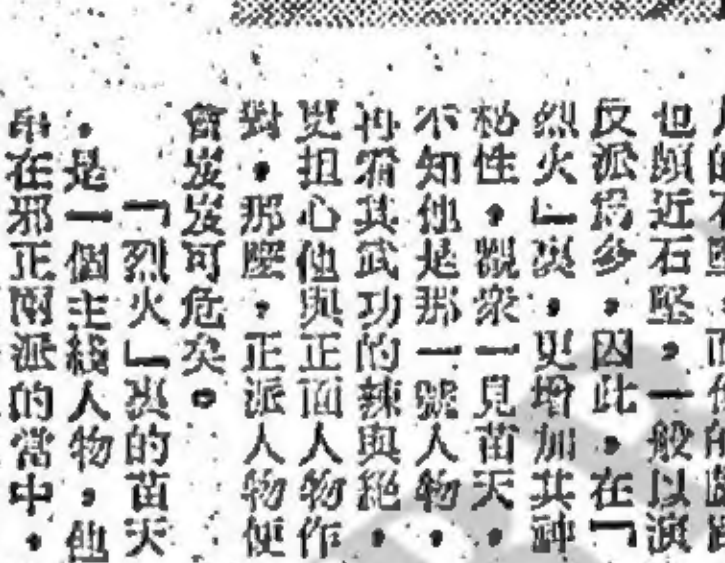 也頗近石堅，一般以演
反派爲多。因此，在『
烈火』裏，更增加其神
秘性。觀衆一見苗天，
不知他是那一號人物，
再看其武功的辣與絕，
更担心他與正面人物作
對，那麼，正派人物便
會岌岌可危矣。
『烈火』裏的苗天
，是一個主綫人物，他
在邪正兩派的當中，